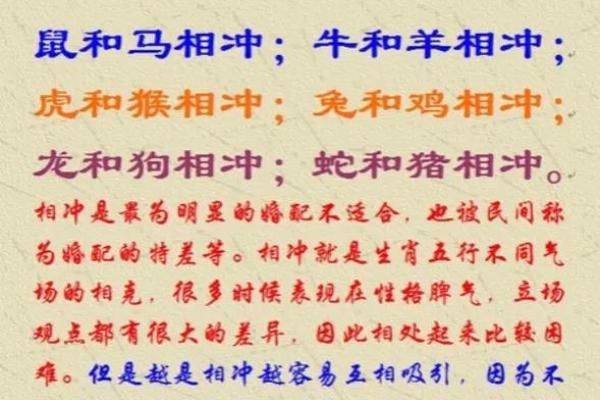 鼠和马相冲；牛和羊相冲；
虎和猴相冲；兔和鸡相冲；
龙和狗相冲；蛇和猪相冲。
相冲是最为明显的婚配不适合，也被民间称
为婚配的特差等。相冲就是生肖五行不同气
场的相克，很多时候表现在性格脾气，立场
观点都有很大的差异，因此相处起来比较困
难。但是越是相冲越容易互相吸引，因为不